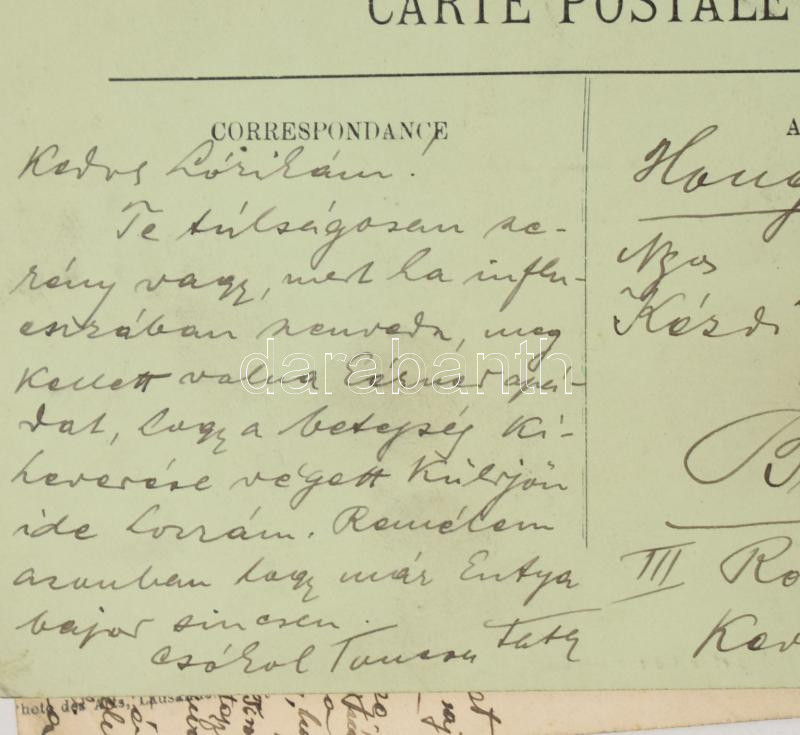 CARTE POSTALE
CORRESPONDANCE
Kedves Lórikám!
Te túlságosan sze-
rény vagy, mert ha influ-
enzában szenvedsz, meg
kellett volna kérned apá-
dat, hogy a betegség ki-
heverése végett küldjön
ide hozzám. Remélem
azonban hogy már kutya
bajod sincsen.
Csókol
Hong
Ngos
Kézdi
III Ro
darabanth
Photo des Arts, Lausanne